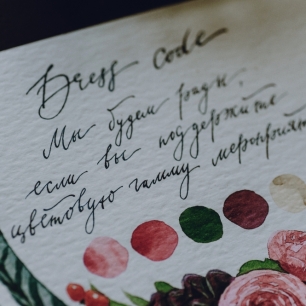 Dress code
Мы будем рады,
если вы поддержите
цветовую гамму мероприят